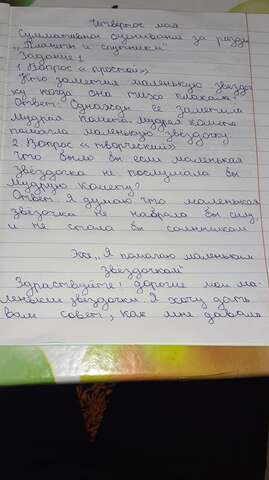 Четвёртое мая
Суммативное оценивание за разде
„Планеты и спутники"
Задание 1
1 Вопрос «простой»
Кто заметил маленькую звездоч
ку когда она тихо плакала
Ответ: Однажды её заметила
мудрая комета. Мудрая комета
помогла маленькую звездочку.
2 Вопрос «творческий»
Что было бы если маленькая
звёздочка не послушала бы
мудрую комету?
Ответ: Я думаю что маленькая
звёзочка не набрала бы силу
и не стала бы солнышком
Эссе „Я помогаю маленьким
звёздочкам"
Здраствуйте! дорогие мои ма-
ленькие звёздочки. Я хочу дать
вам совет, как мне давала